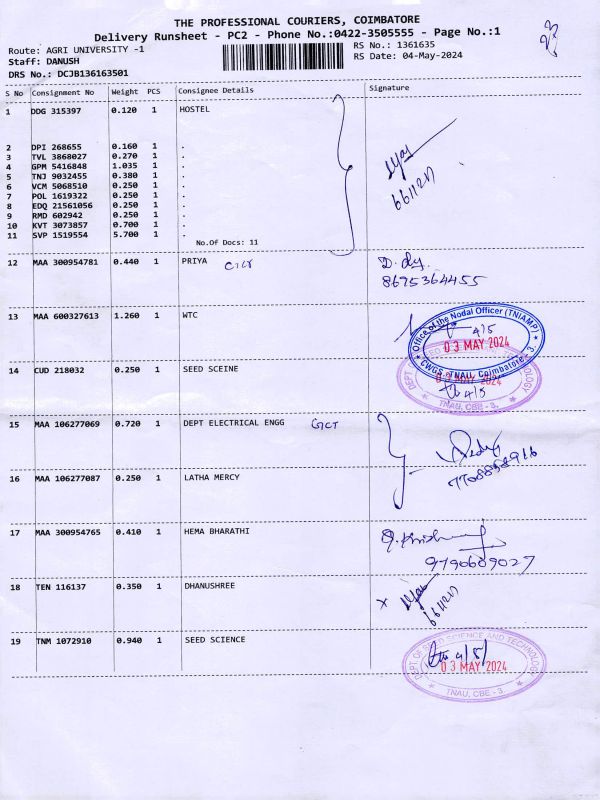 THE PROFESSIONAL COURIERS, COIMBATORE
Delivery Runsheet - PC2 - Phone No.:0422-3505555 - Page No.:1
Route: AGRI UNIVERSITY -1
RS No.: 1361635
Staff: DANUSH
RS Date: 04-May-2024
DRS No.: DCJB136163501
S No Consignment No Weight PCS Consignee Details Signature
1 DDG 315397 0.120 1 HOSTEL
2 DPI 268655 0.160 1 .
3 TVL 3868027 0.270 1 .
4 GPM 5416848 1.035 1 .
5 TNJ 9032455 0.380 1 .
6 VCM 5068510 0.250 1 .
7 POL 1619322 0.250 1 .
8 EDQ 21561056 0.250 1 .
9 RMD 602942 0.250 1 .
10 KVT 3073857 0.700 1 .
11 SVP 1519554 5.700 1 .
No.Of Docs: 11
12 MAA 300954781 0.440 1 PRIYA
8675364455
13 MAA 600327613 1.260 1 WTC
Office of the Nodal Officer (TNIAMP)
4/5
03 MAY 2024
CWGS, TNAU, Coimbatore - 3.
14 CUD 218032 0.250 1 SEED SCEINE
03 MAY 2024
4/5
TNAU, CBE - 3.
15 MAA 106277069 0.720 1 DEPT ELECTRICAL ENGG GCT
16 MAA 106277087 0.250 1 LATHA MERCY
17 MAA 300954765 0.410 1 HEMA BHARATHI
9790609027
18 TEN 116137 0.350 1 DHANUSHREE
x
19 TNM 1072910 0.940 1 SEED SCIENCE
DEPT. OF SEED SCIENCE AND TECHNOLOGY
4/5/
03 MAY 2024
TNAU, CBE - 3.